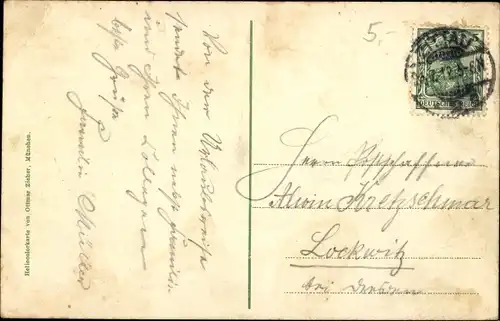 5.-
ZITTAU
DEUTSCHES REICH
Von der Urlaubsreise
sendet Ihnen nebst Familie
und Ihren Kollegen
beste Grüße
Familie Müller
Herrn
Alwin Kretzschmar
Lockwitz
bei Dresden
Heliocolorkarte von Ottmar Zieher, München.